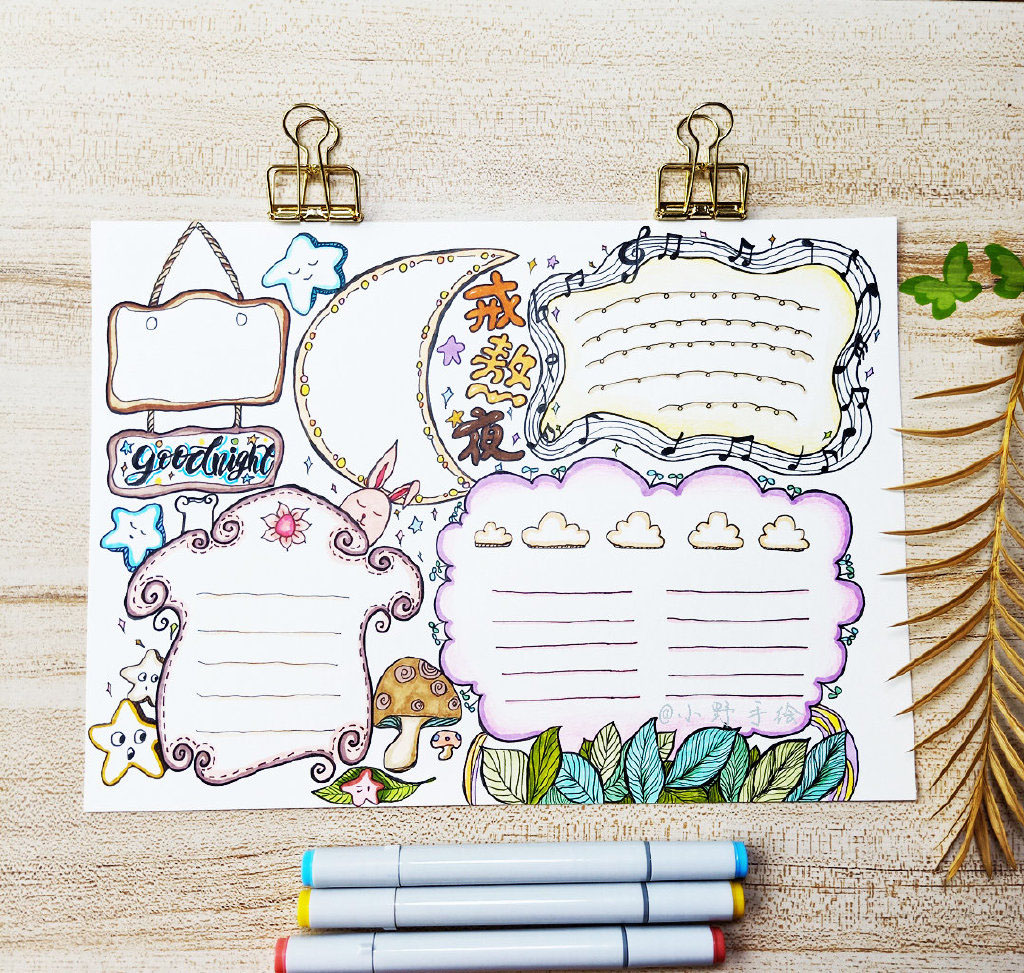 戒
熬
夜
goodnight
@小野手绘